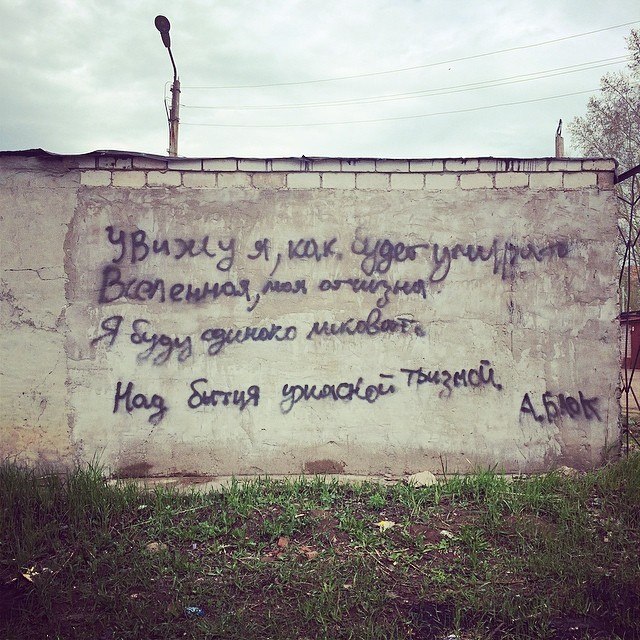 Увижу я, как будет умирать
Вселенная, моя отчизна.
Я буду одиноко ликовать
Над бытия ужасной тризной.
А. Блок